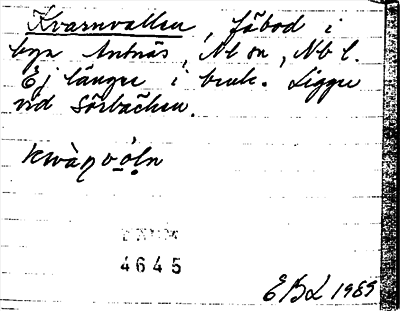 Kvarnvallen, fäbod i
byn Antnäs, Nl sn, Nb l.
Ej längre i bruk. Ligger
vid Sörbäcken.
4645
EBL 1989